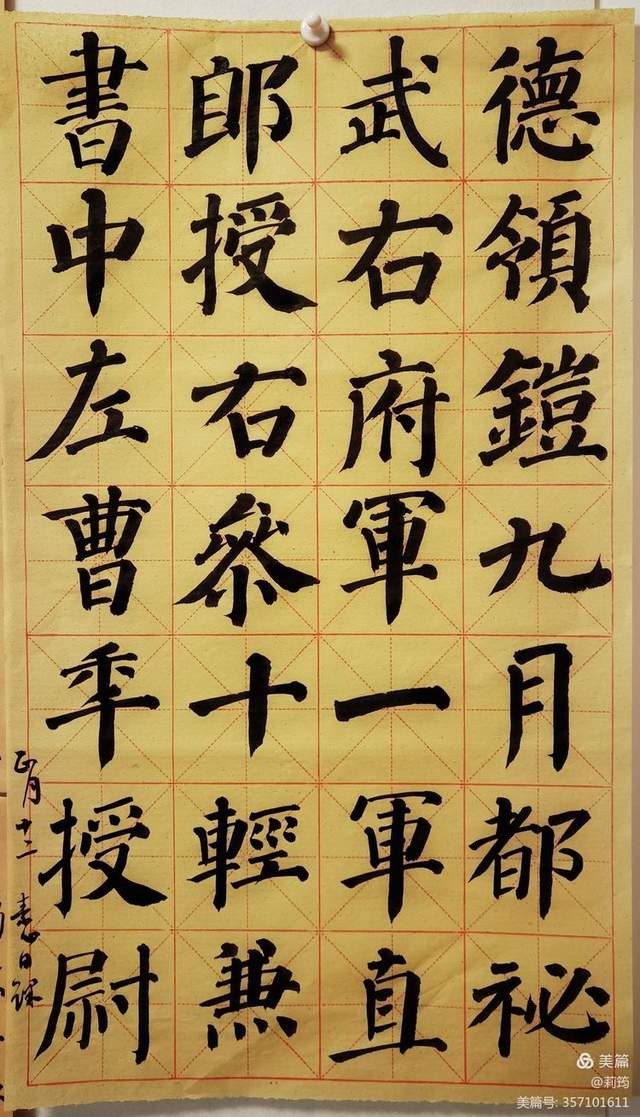 德領鎧九月都祕
武右府軍一軍直
郎授右叅十輕兼
書中左曹平授尉
正月十二
美篇
@莉筠
美篇号: 357101611